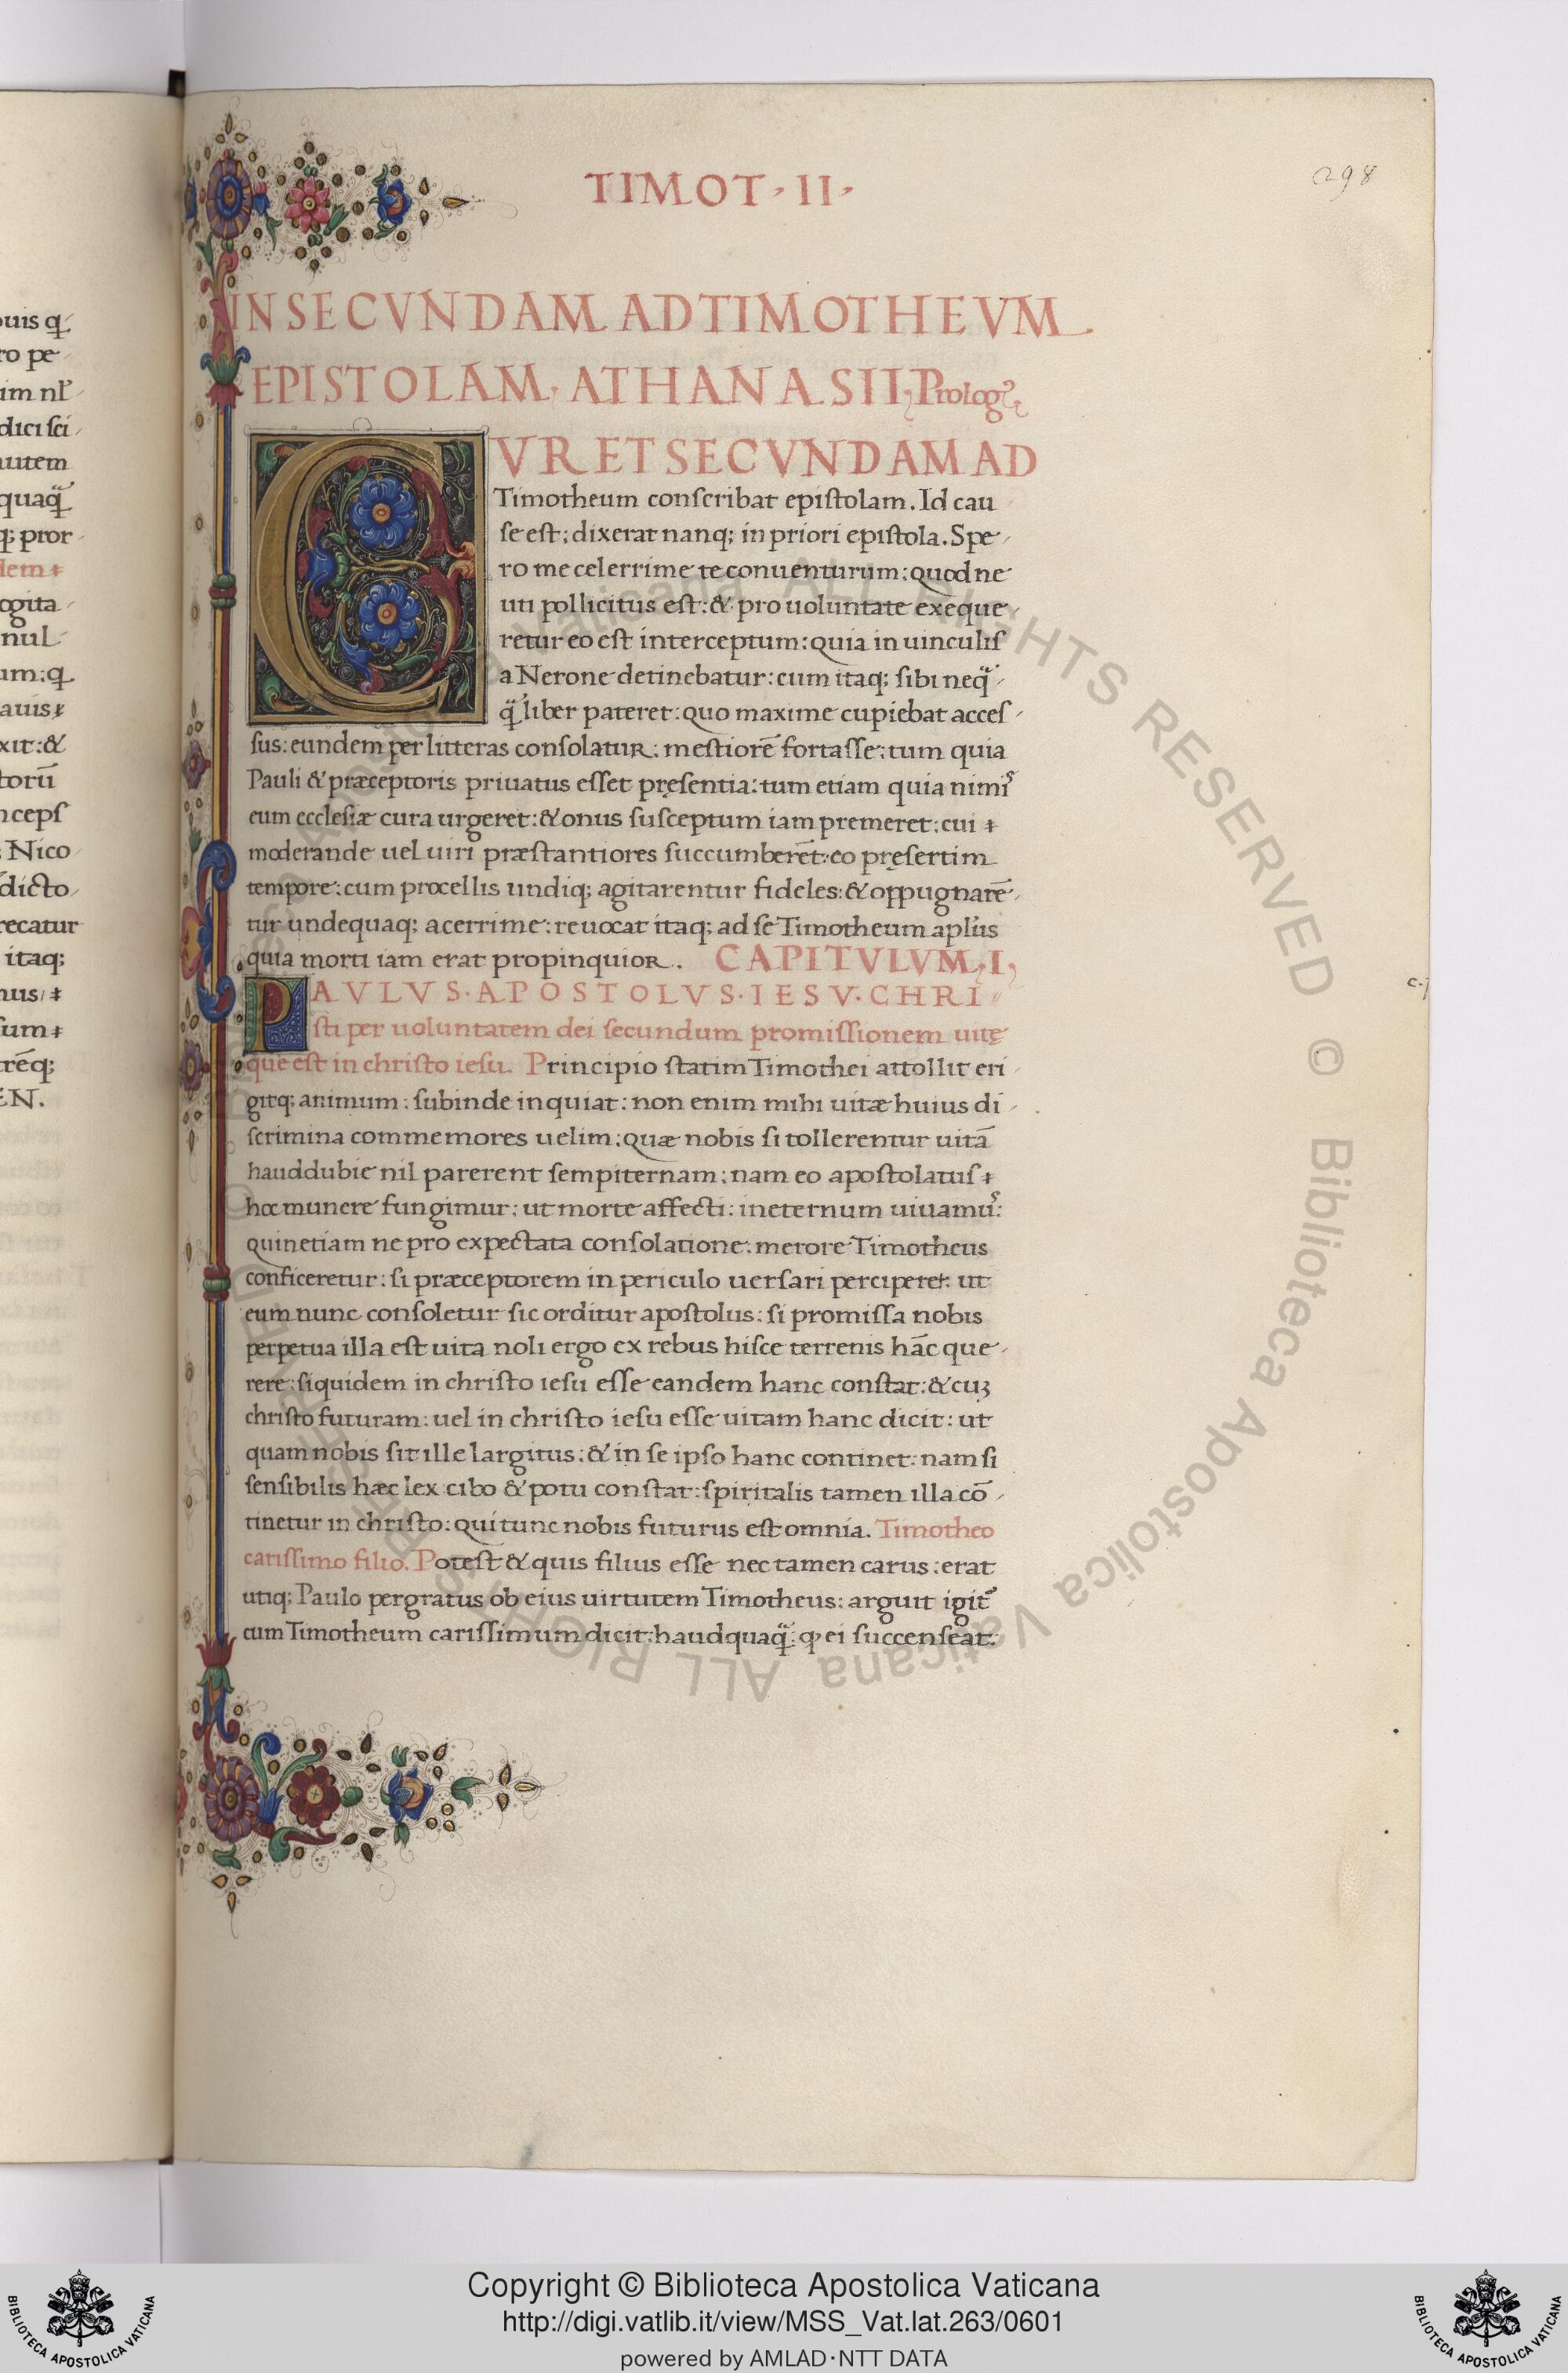 TIMOT · II ·
298
IN SECVNDAM AD TIMOTHEVM
EPISTOLAM · ATHANASII; Prolog⁹
CVR ET SECVNDAM AD
Timotheum conscribat epistolam. Id cau
se est: dixerat nanq; in priori epistola. Spe
ro me celerrime te conuenturum: quod ne
uti pollicitus est: & pro uoluntate exeque
retur eo est interceptum: quia in uinculis
a Nerone detinebatur: cum itaq; sibi neq̃
q̃ liber pateret: quo maxime cupiebat acces
sus: eundem per litteras consolatur: mestiorē fortasse: tum quia
Pauli & præceptoris priuatus esset pręsentia: tum etiam quia nimiˢ
eum ecclesiæ cura urgeret: & onus susceptum iam premeret: cui
moderande uel uiri præstantiores succumberēt: eo pręsertim
tempore: cum procellis undiq; agitarentur fideles: & oppugnarē
tur undequaq; acerrime: reuocat itaq; ad se Timotheum aplūs
quia morti iam erat propinquior. CAPITVLVM, I,
PAVLVS · APOSTOLVS · IESV · CHRI
sti per uoluntatem dei secundum promissionem uitę
que est in christo iesu. Principio statim Timothei attollit eri
gitq; animum: subinde inquiat: non enim mihi uitæ huius di
scrimina commemores uelim: quæ nobis si tollerentur uitā
hauddubie nil parerent sempiternam: nam eo apostolatus
hoc munere fungimur: ut morte affecti: ineternum uiuamuˢ:
quinetiam ne pro expectata consolatione: merore Timotheus
conficeretur: si præceptorem in periculo uersari perciperet: ut
eum nunc consoletur sic orditur apostolus: si promissa nobis
perpetua illa est uita noli ergo ex rebus hisce terrenis hāc que
rere: siquidem in christo iesu esse eandem hanc constat: & cuꝫ
christo futuram: uel in christo iesu esse uitam hanc dicit: ut
quam nobis sit ille largitus: & in se ipso hanc continet: nam si
sensibilis hæc lex cibo & potu constat: spiritalis tamen illa cō
tinetur in christo: qui tunc nobis futurus est omnia. Timotheo
carissimo filio. Potest & quis filius esse nec tamen carus: erat
utiq; Paulo pergratus ob eius uirtutem Timotheus: arguit igit᷑
cum Timotheum carissimum dicit: haudquaq̃: ꝙ ei succenseat:
Copyright © Biblioteca Apostolica Vaticana
http://digi.vatlib.it/view/MSS_Vat.lat.263/0601
powered by AMLAD·NTT DATA